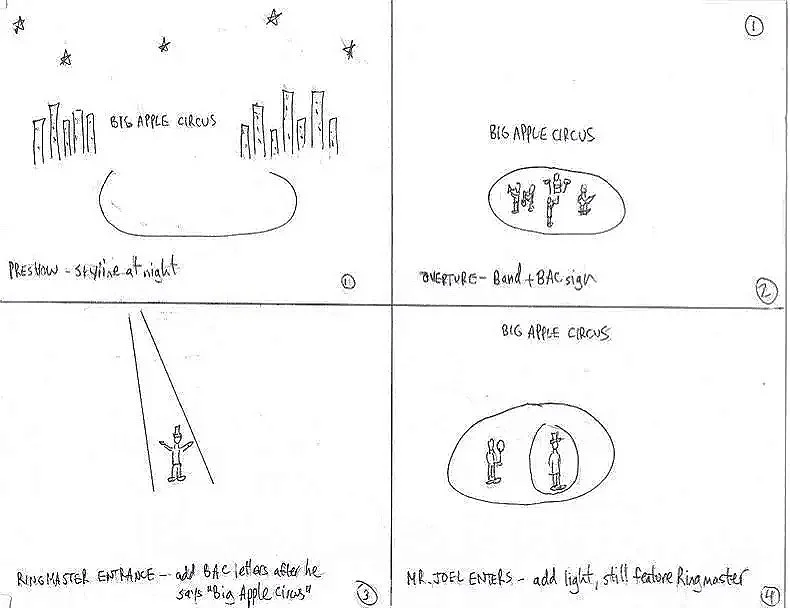 BIG APPLE CIRCUS
PRESHOW - skyline at night
1
1
BIG APPLE CIRCUS
OVERTURE - Band + BAC sign
2
RINGMASTER ENTRANCE - add BAC letters after he
says "Big Apple Circus"
3
BIG APPLE CIRCUS
MR. JOEL ENTERS - add light, still feature Ringmaster
4